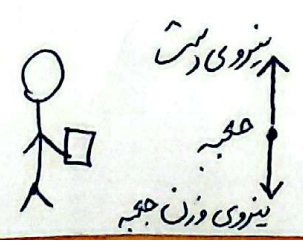 نیروی دست
جعبه
نیروی وزن جعبه